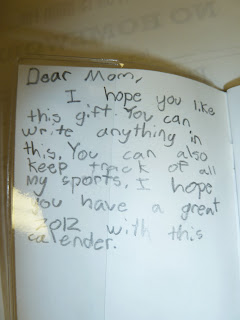 Dear Mom,
I hope you like
this gift. You can
write anything in
this. You can also
keep track of all
my sports. I hope
you have a great
2012 with this
calender.